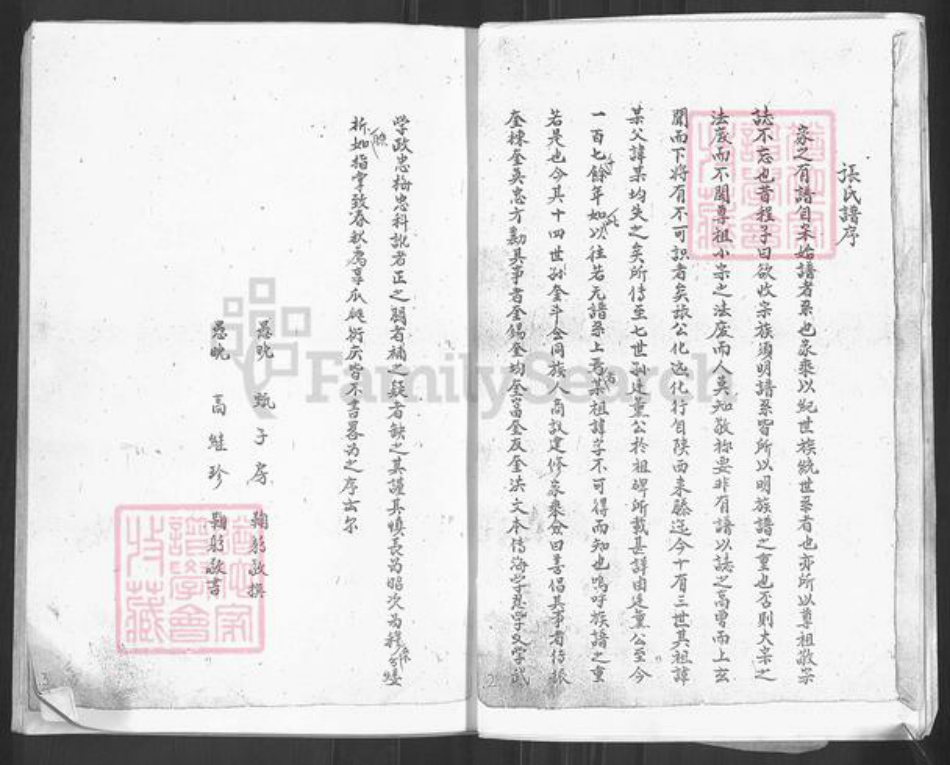 張氏譜序
家之有譜自宋始譜者系也家乘以紀世族統世系者也亦所以尊祖敬宗
誌不忘也昔程子曰欲收宗族須明譜系皆所以明族譜之重也否則大宗之
法廢而不聞尊祖小宗之法廢而人莫知敬祢要非有譜以誌之高曾而上玄
聞而下將有不可識者矣族公化 化行自陝西來 迄今十有三世其祖諱
某父諱某均失之矣所傳至七世孫廷薰公於祖碑所載甚詳由廷薰公至今
一百七十餘年如以往若无譜系上焉某祖諱字不可得而知也嗚呼族譜之重
若是也今其十四世孫奎斗會同族人商議建修家乘僉曰善倡其事者侍族
奎棟奎英忠方勷其事者奎錫奎均奎富奎友奎法文本傳海学 学文学武
学政忠梅忠科訛者正之弱者補之疑者缺之其謹其慎長 昭次 穆
析如指掌致春秋 享瓜瓞衍庆皆不書畧為之序云尔
愚晚 甄子房 鞠躬敬撰
愚晚 高維珍 鞠躬敬書
FamilySearch
2
3